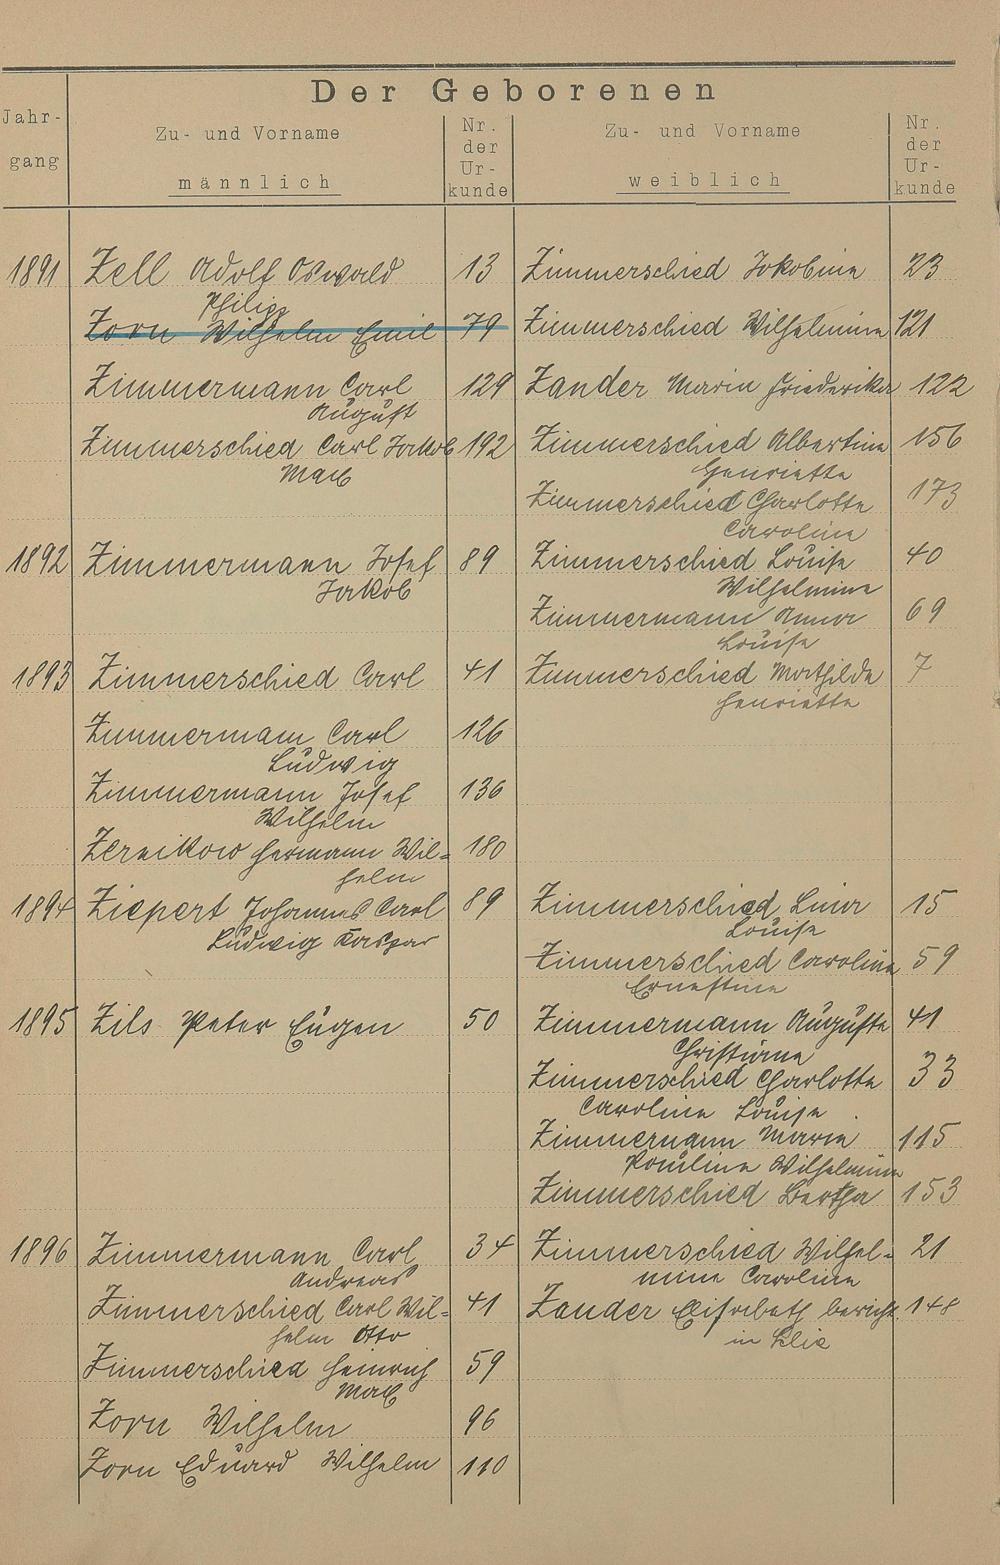 Der Geborenen
Jahr-
gang
Zu- und Vorname
männlich
Nr.
der
Ur-
kunde
Zu- und Vorname
weiblich
Nr.
der
Ur-
kunde
1891 Zell Adolf Oswald 13 Zimmerschied Jakobine 23
Philipp
Zorn Wilhelm Emil 79 Zimmerschied Wilhelmine 121
Zimmermann Carl 129 Zander Maria Friederika 122
August
Zimmerschied Carl Jakob 192 Zimmerschied Albertine 156
Max Henriette
Zimmerschied Charlotte 173
Caroline
1892 Zimmermann Josef 89 Zimmerschied Louise 40
Jakob Wilhelmine
Zimmermann Anna 69
Louise
1893 Zimmerschied Carl 41 Zimmerschied Mathilde 7
Henriette
Zimmermann Carl 126
Ludwig
Zimmermann Josef 136
Wilhelm
Zernikow Hermann Wil= 180
helm
1894 Ziepert Johannes Carl 89 Zimmerschied Lina 15
Ludwig Kaspar Louise
Zimmerschied Caroline 59
Ernestine
1895 Zils Peter Eugen 50 Zimmermann Auguste 41
Christiane
Zimmerschied Charlotte 33
Caroline Louise
Zimmermann Marie 115
Pauline Wilhelmine
Zimmerschied Bertha 153
1896 Zimmermann Carl 34 Zimmerschied Wilhel= 21
Andreas mine Caroline
Zimmerschied Carl Wil= 41 Zander Elisabeth bericht. 148
helm Otto in
Zimmerschied Heinrich 59
Max
Zorn Wilhelm 96
Zorn Eduard Wilhelm 110